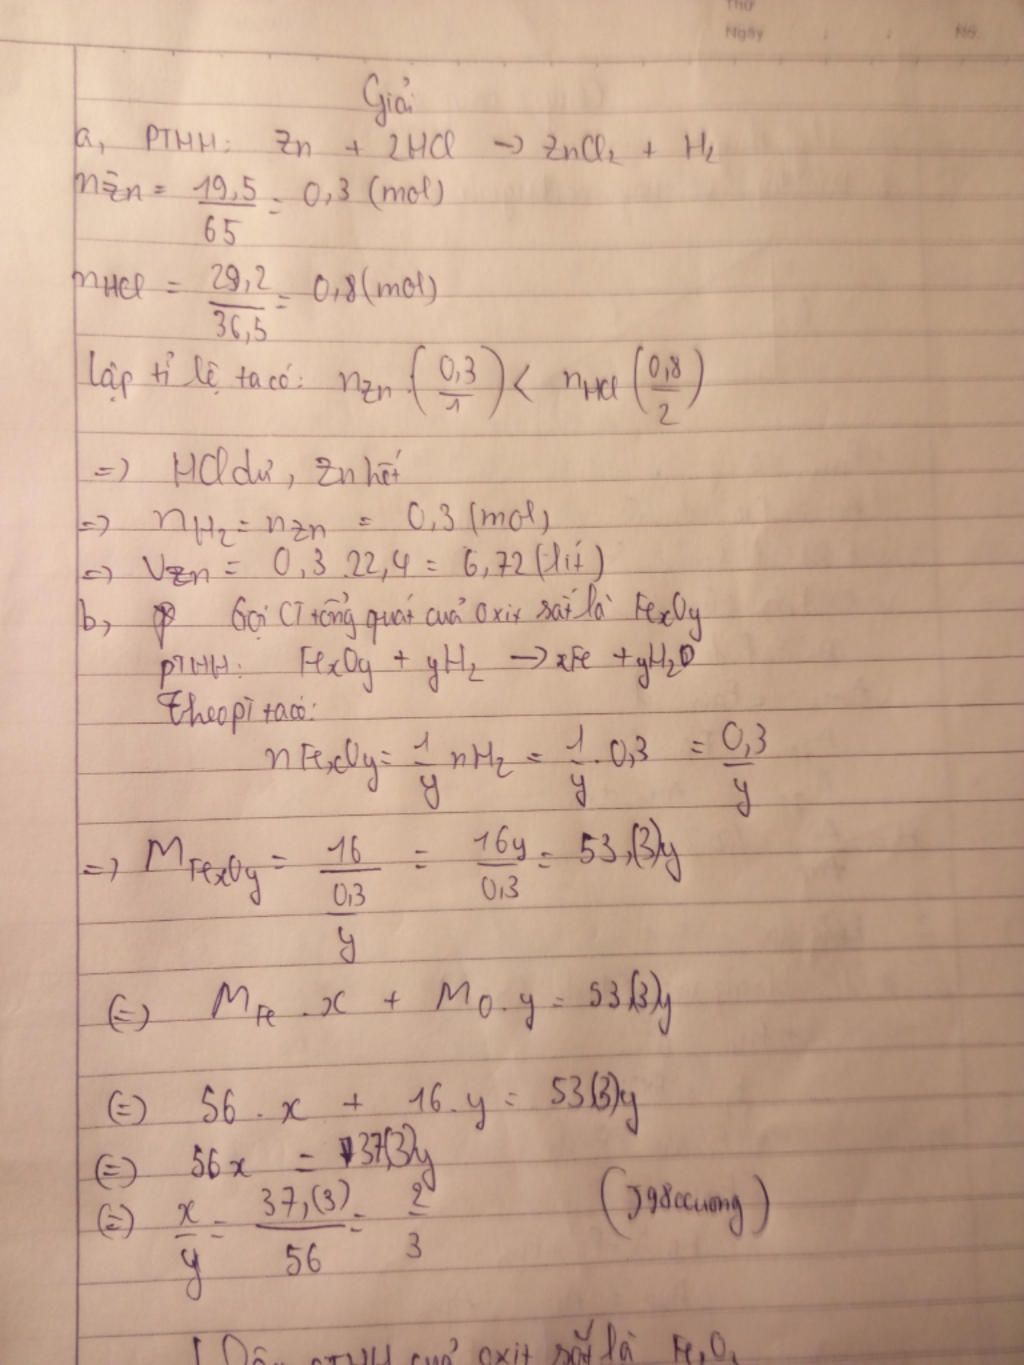 Thứ
Ngày No.
Giải
a, PTHH: Zn + 2HCl → ZnCl₂ + H₂
nZn = 19,5/65 = 0,3 (mol)
nHCl = 29,2/36,5 = 0,8 (mol)
lập tỉ lệ ta có: nZn (0,3/1) < nHCl (0,8/2)
=> HCl dư, Zn hết
=> nH₂ = nZn = 0,3 (mol)
=> VZn = 0,3.22,4 = 6,72 (lít)
b, Gọi CT tổng quát cuả oxit sắt là FexOy
PTHH: FexOy + yH₂ → xFe + yH₂O
Theo pT ta có:
nFexOy = 1/y nH₂ = 1/y . 0,3 = 0,3/y
=> MFexOy = 16/(0,3/y) = 16y/0,3 = 53,(3)y
(=) MFe . x + MO . y = 53,(3)y
(=) 56 . x + 16 . y = 53,(3)y
(=) 56x = 37,(3)y
(=) x/y = 37,(3)/56 = 2/3
(J98ccuong)
PTHH cuả oxit sắt là